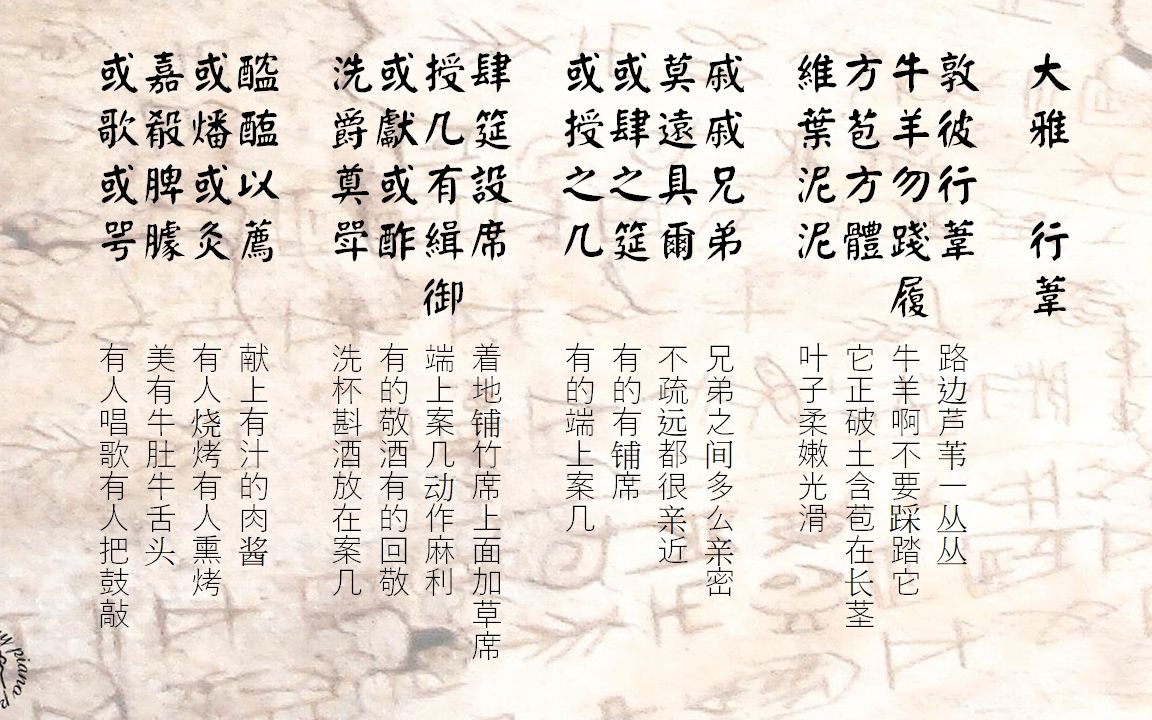 大雅 行葦
敦彼行葦
路边芦苇一丛丛
牛羊勿踐履
牛羊啊不要踩踏它
方苞方體
它正破土含苞在长茎
維葉泥泥
叶子柔嫩光滑
戚戚兄弟
兄弟之间多么亲密
莫遠具爾
不疏远都很亲近
或肆之筵
有的有铺席
或授之几
有的端上案几
肆筵設席
着地铺竹席上面加草席
授几有緝御
端上案几动作麻利
或獻或酢
有的敬酒有的回敬
洗爵奠斝
洗杯斟酒放在案几
醓醢以薦
献上有汁的肉酱
或燔或炙
有人烧烤有人熏烤
嘉殽脾臄
美有牛肚牛舌头
或歌或咢
有人唱歌有人把鼓敲
piano